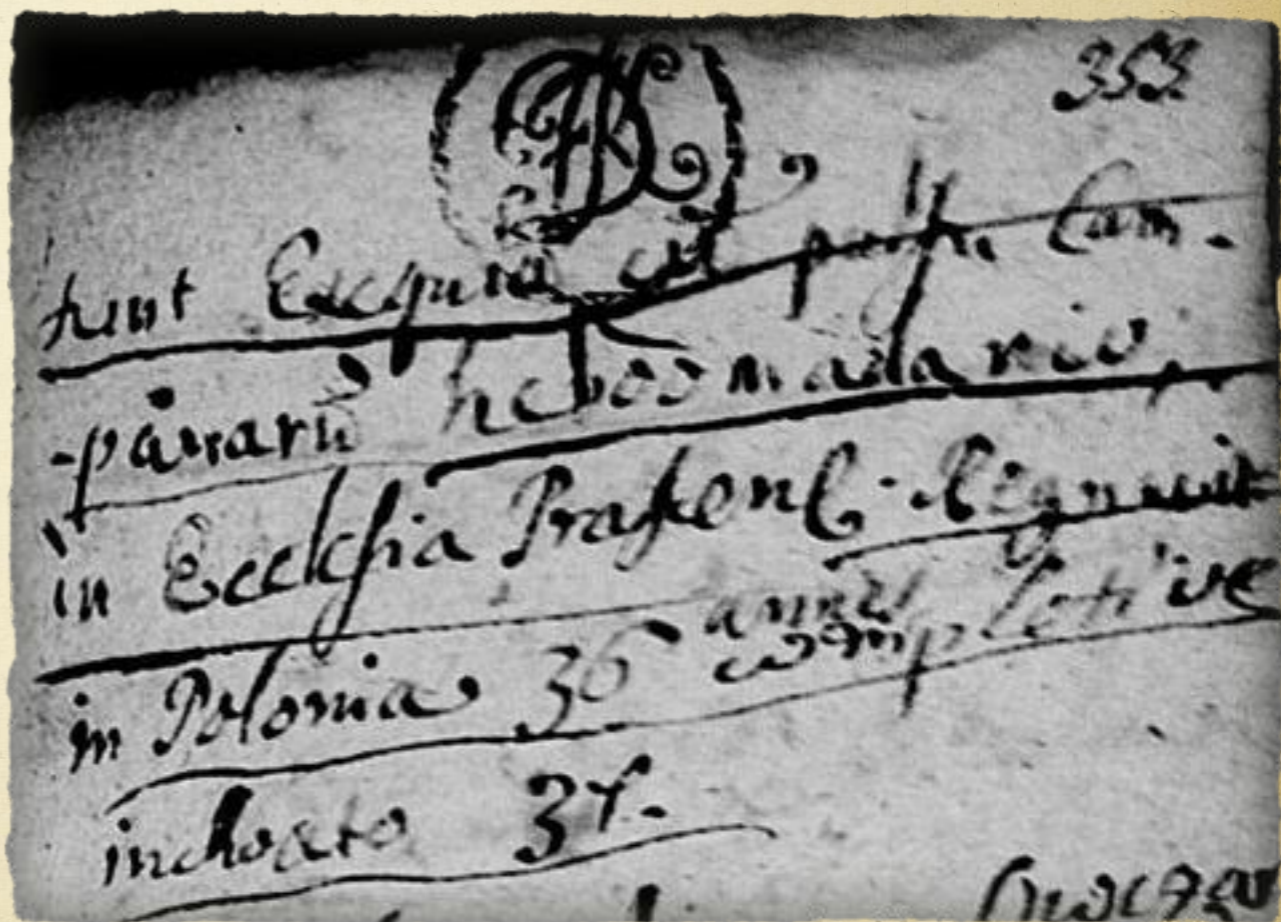 353
Exequiae cū pulsu Cam-
-panarū hebdomadario,
in Ecclesia Praesenti. Regnavit
in Polonia 36 annis completive
inchoato 37.